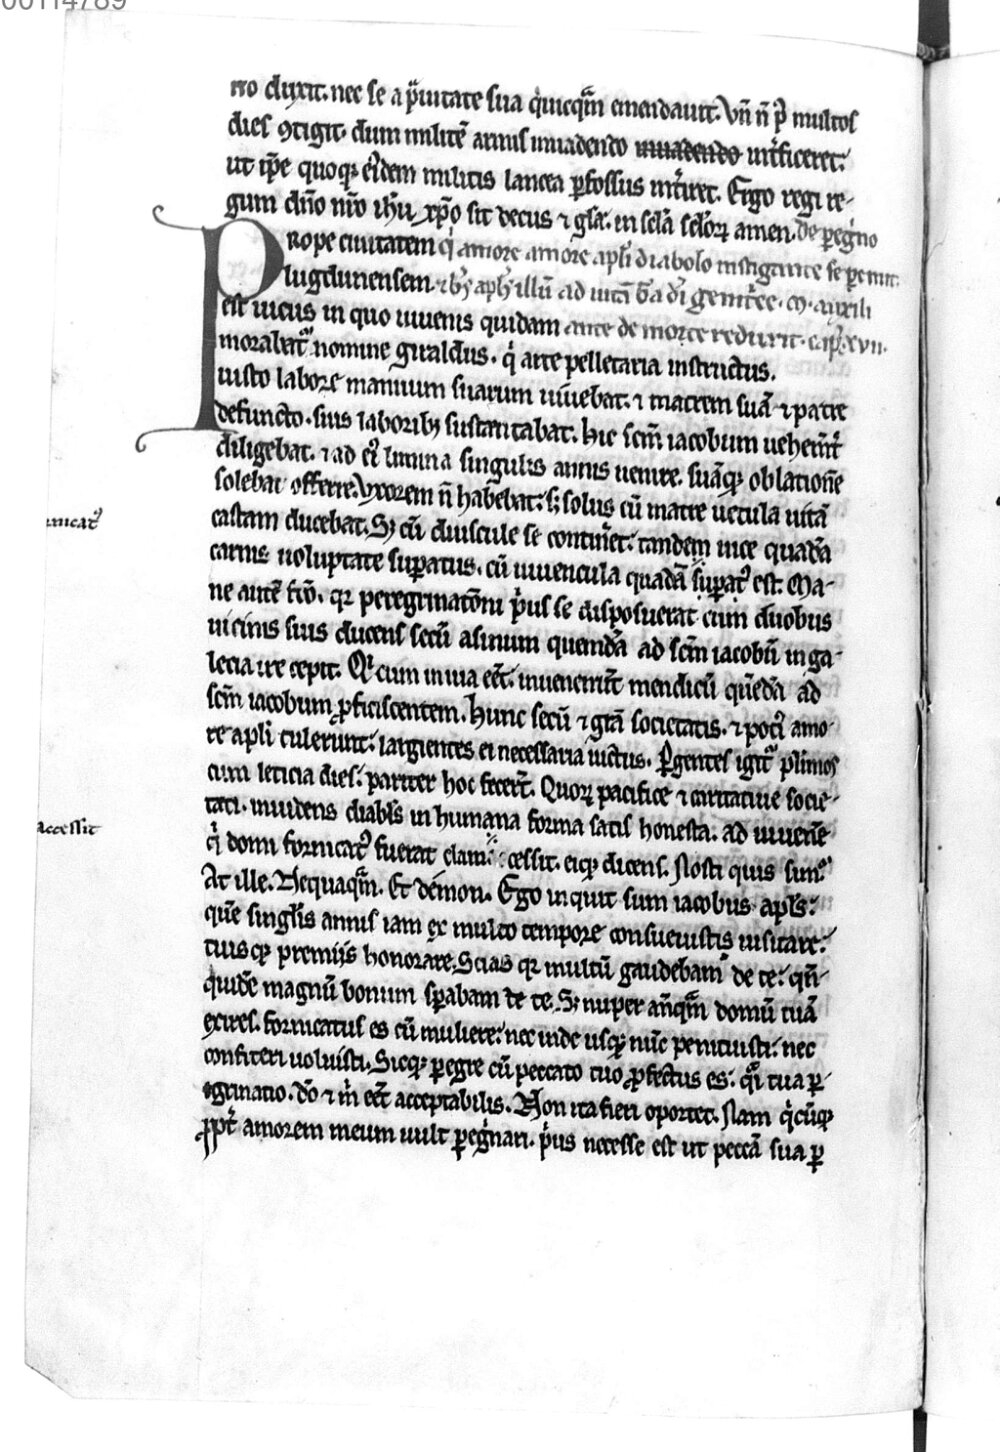 00114789
tro duxit. nec se a p̃uitate sua q̓icq̃m emendauit. Vñ ñ p̃ multos
dies ꝯtigit. dum militẽ armis inuadendo inuadendo int̓ficeret:
ut ip̃e quoqꝫ ei᷒dem militis lancea ꝑfossus int̓iret. Ergo regi re-
gum dño nr̃o ihũ xp̃o sit decus ⁊ gl̃a. in scl̃a scl̃oꝝ amen. De peg̓no
PRope ciuitatem q̓ amore amore apl̃i diabolo instigante se ꝑemit.
lugdunensem. ⁊ bꝫ apl̃s illũ ad uitã b̃a dĩ genit̓ce. m. auxili
est uicus in quo iuuenis quidam ante de morte reduxit. cap̃. xvii.
morabat᷑ nomine giraldus. q̓ arte pelletaria instructus.
iusto labore manuum suarum uiuebat. ⁊ matrem suã ⁊ patre
defuncto. suis laboribꝫ sustentabat. Hic scm̃ iacobum uehem̃t̓
diligebat. ⁊ ad ei᷒ limina singulis annis uenire. suãqꝫ oblationẽ
solebat offerre. Vxorem ñ habebat: sꝫ solus cũ matre uetula uitã
castam ducebat. Sꝫ cũ diuscule se contin̓et: tandem nocte quadã
carnis uoluptate suꝑatus. cũ iuuencula quadã suꝑat᷒ est. Ma-
ne autẽ fc̃o. qꝛ peregrinatõni p̓us se disposuerat cum duobus
uicinis suis ducens secũ asinum quendã ad scm̃ iacobũ in ga-
lecia ire cepit. Qi cum in uia eẽt: inuenerũt mendicũ quẽdã ad
scm̃ iacobum ꝓficiscentem. Hunc secũ ⁊ gr̃ã societatis. ⁊ poci᷒ amo-
re apl̃i tulerunt: largientes ei necessaria uictus. Pergentes igit᷑ pl̓imos
cum leticia dies: pariter hoc fecer̃t. Quoꝝ pacifice ⁊ caritatiue socie-
tati. inuidens diabl̃s in humana forma satis honesta: ad iuuenẽ
q̓ domi fornicat᷒ fuerat clam cessit. eiqꝫ dicens. Nosti quis sum?
At ille. Nequaq̃m. Et demon. Ego inquit sum iacobus apl̃s:
quẽ singl̃is annis iam ex multo tempore consueuistis uisitare:
tuisqꝫ premijs honorare. Scias qꝛ multũ gaudebam de te: qñ-
quidẽ magnũ bonum sꝑabam de te. Sꝫ nuper añq̃m domũ tuã
exires. fornicatus es cũ muliere: nec inde usqꝫ nũc penituisti: nec
confiteri uoluisti. Sicqꝫ ꝑegre cũ peccato tuo ꝓfectus es: q̃i tua ꝑ-
egrinatio. dõ ⁊ m̓ eẽt acceptabilis. Non ita fieri oportet. Nam q̓cũqꝫ
ꝓpt̓ amorem meum uult ꝑeg̓nari. p̓us necesse est ut peccã sua ꝑ
accessit